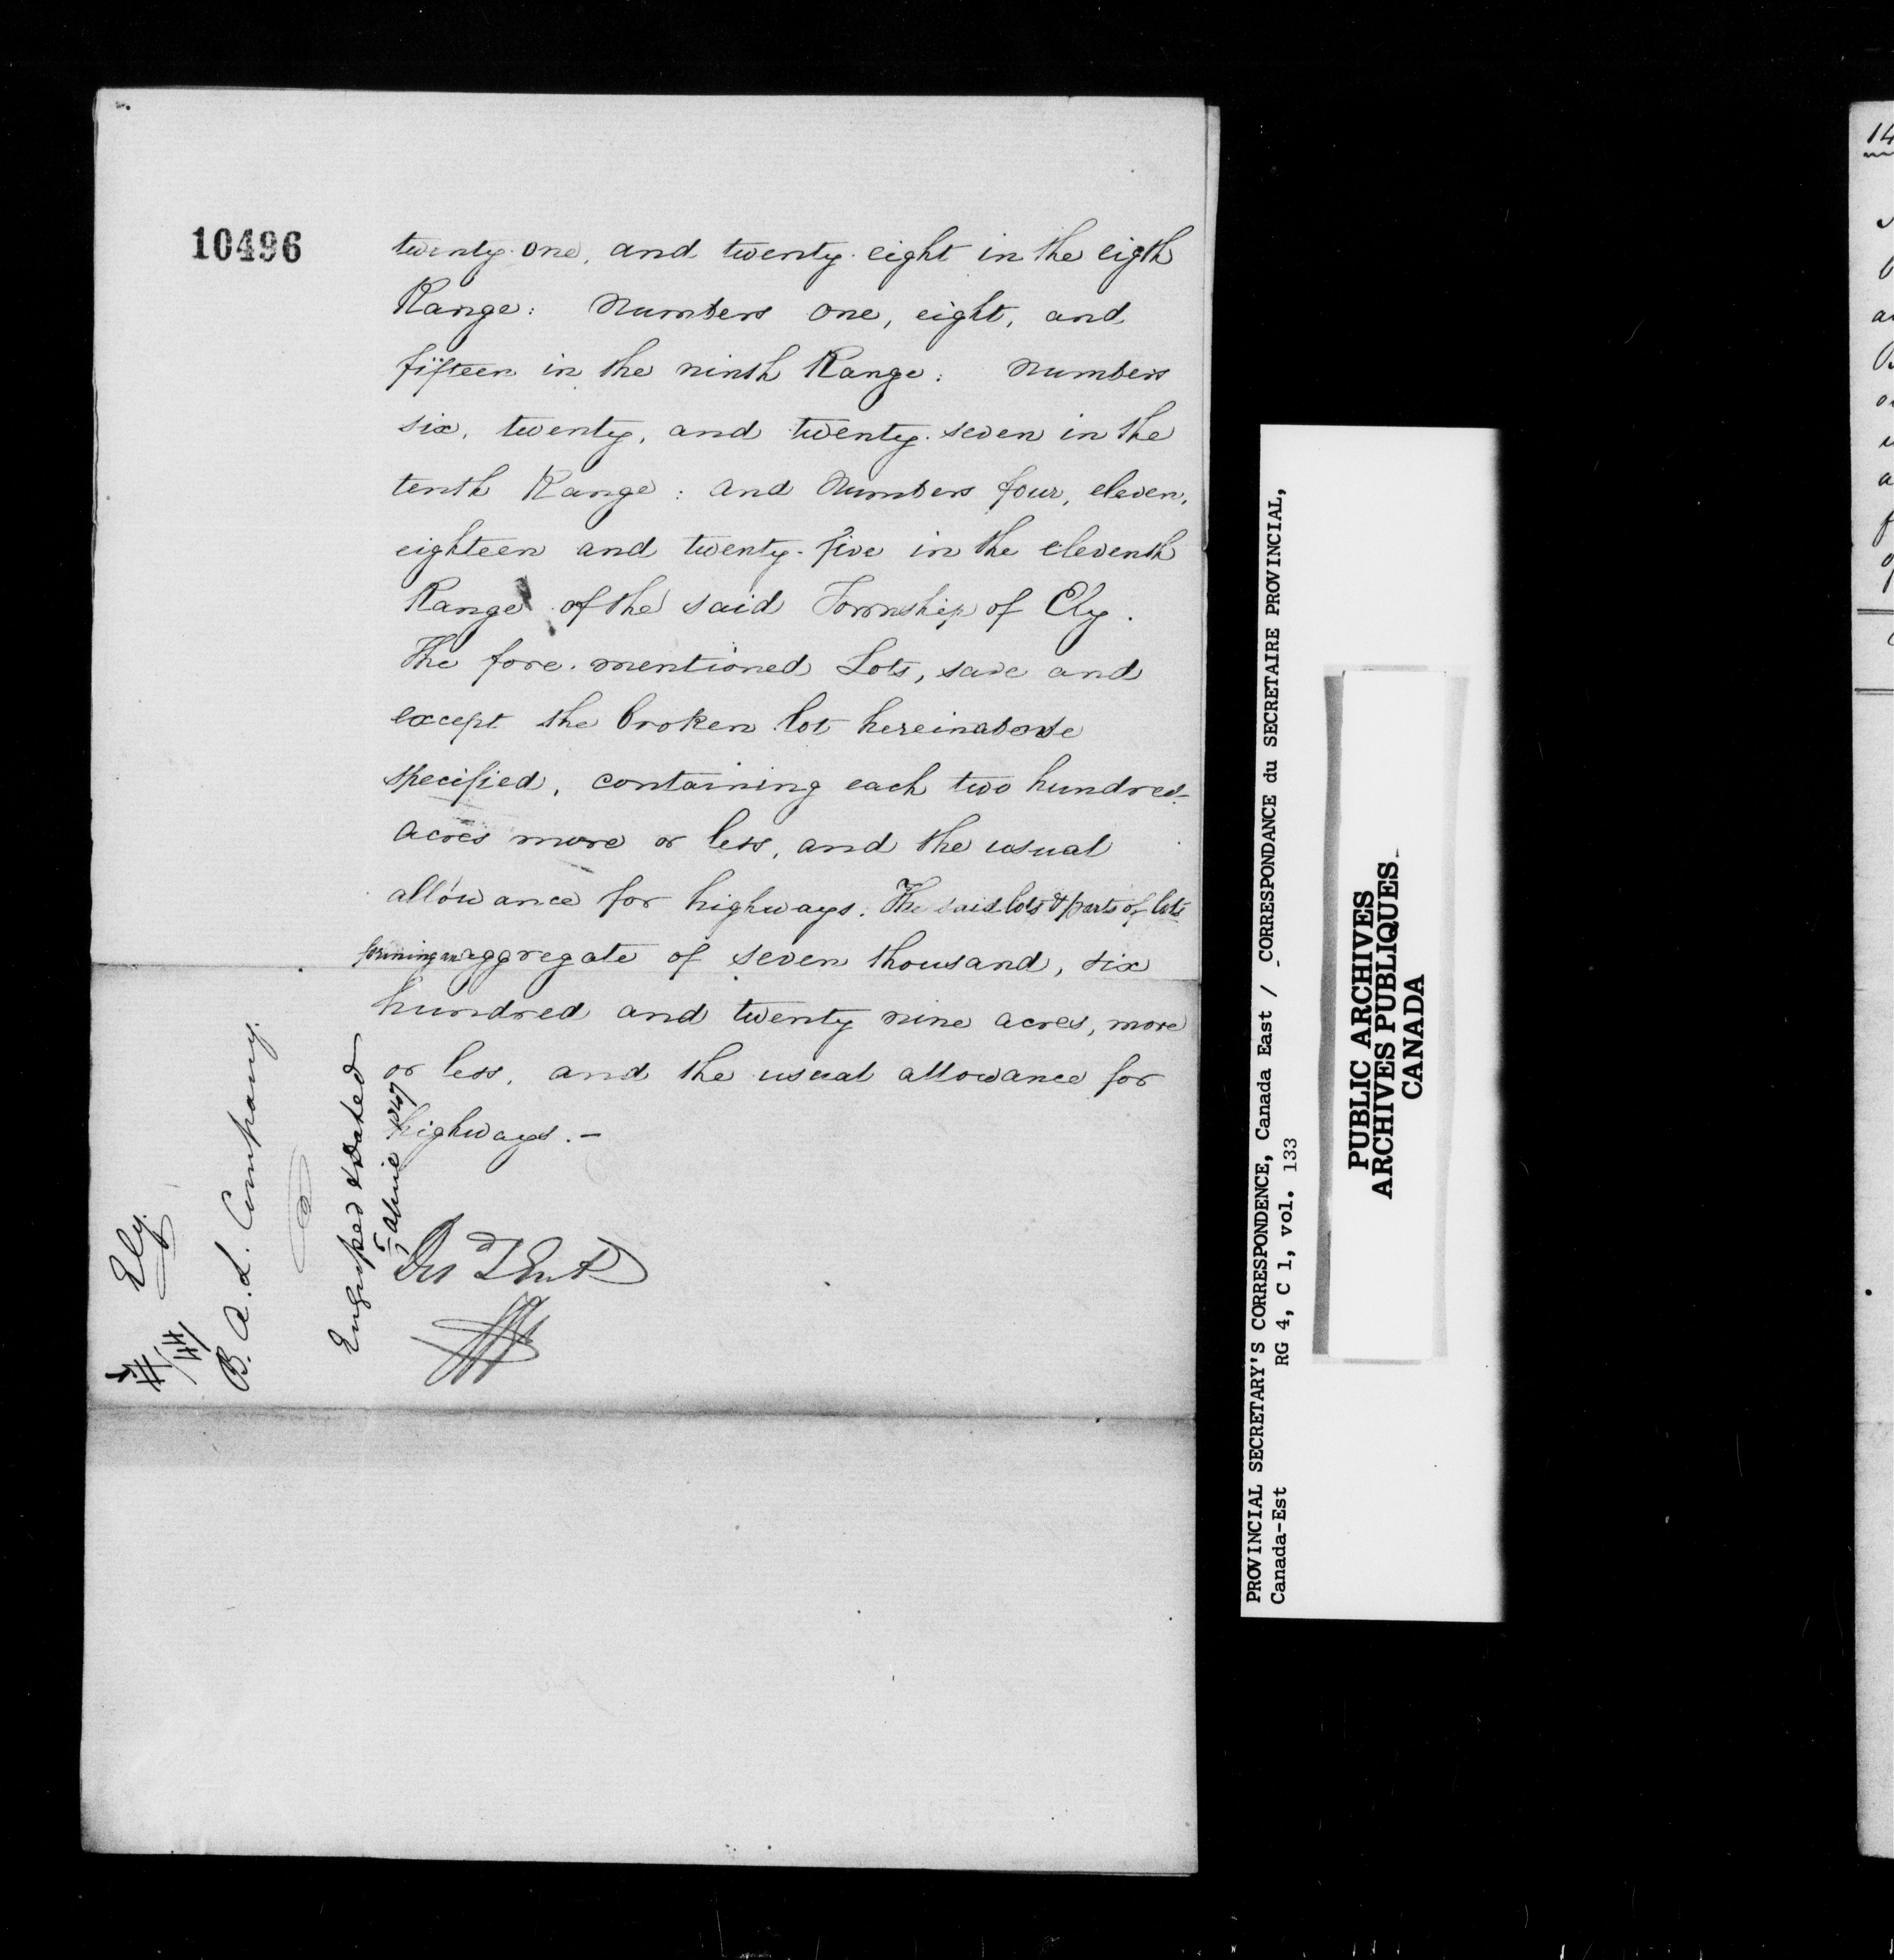 10496
twenty-one, and twenty-eight in the eigth
Range: Numbers one, eight, and
fifteen in the ninth Range: Numbers
six, twenty, and twenty-seven in the
tenth Range: and Numbers four, eleven,
eighteen and twenty-five in the eleventh
Range of the said Township of Ely.
The fore-mentioned Lots, save and
except the broken lot hereinabove
specified, containing each two hundred
acres more or less, and the usual
allowance for highways. The said lots & parts of lots
forming an aggregate of seven thousand, six
hundred and twenty nine acres, more
or less, and the usual allowance for
highways.-
Ely.
B. A. L. Company.
Engrossed & Dated
1847
PROVINCIAL SECRETARY'S CORRESPONDENCE, Canada East / CORRESPONDANCE du SECRETAIRE PROVINCIAL,
Canada-Est RG 4, C 1, vol. 133
PUBLIC ARCHIVES
ARCHIVES PUBLIQUES
CANADA
14